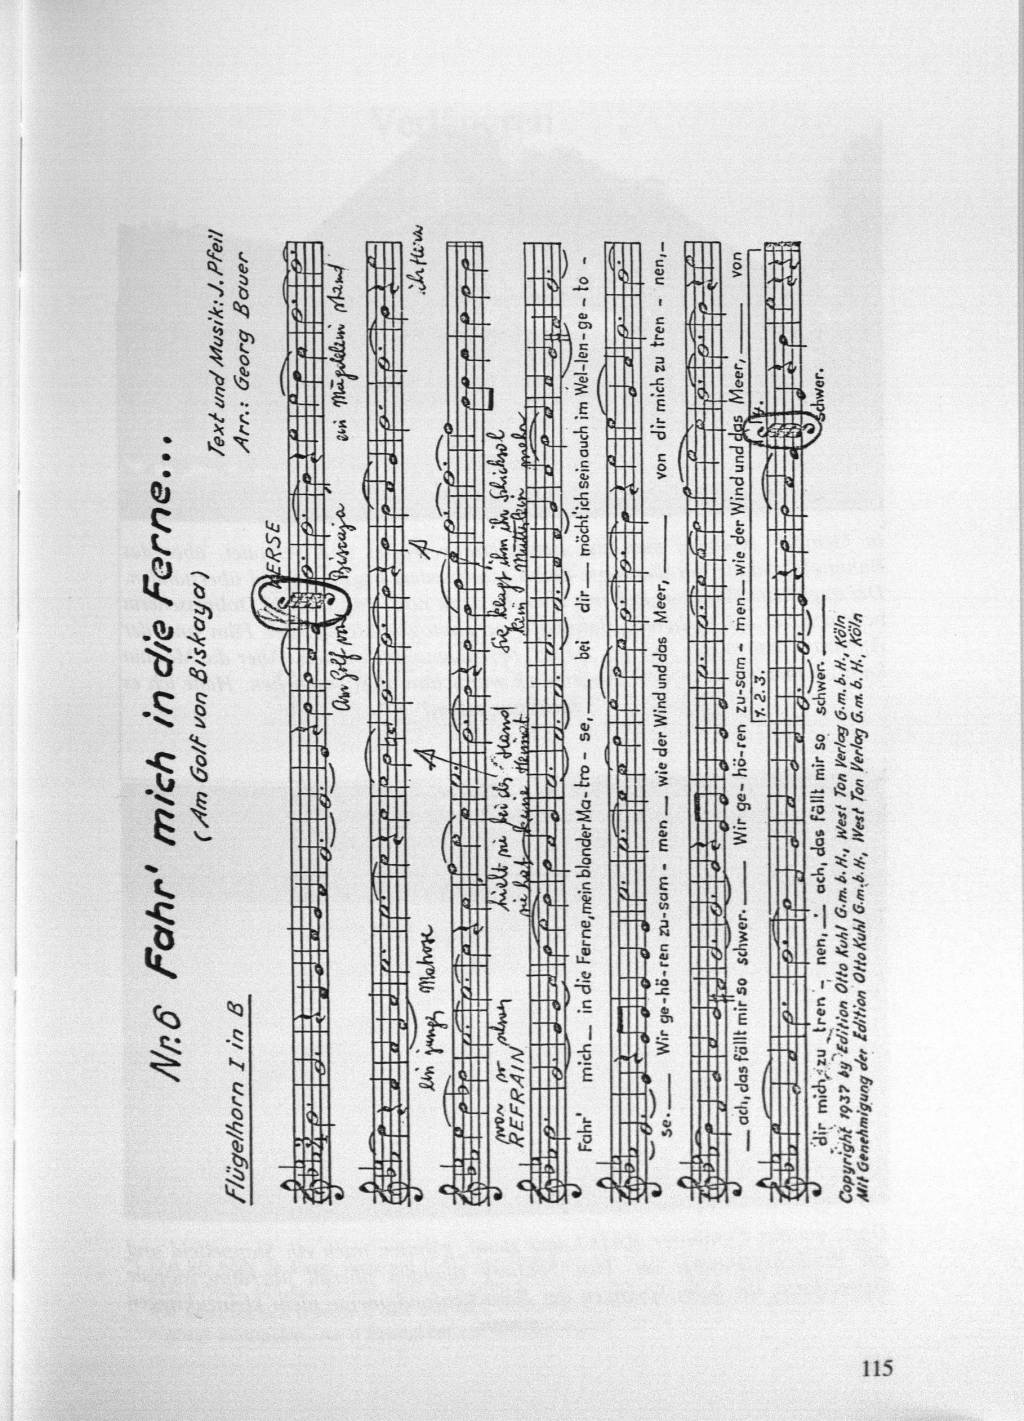 Nr. 6 Fahr' mich in die Ferne...
(Am Golf von Biskaya)
Text und Musik: J. Pfeil
Arr.: Georg Bauer
Flügelhorn I in B
VERSE
Am Golf von Biscaja ein Mägdelein stand
ein junger Matrose ihr Herz
war so schwer
hielt sie bei der Hand Sie klagt ihm ihr Schicksal
sie hat keine Heimat kein Mütterlein mehr
REFRAIN
Fahr' mich in die Ferne, mein blonder Ma-tro-se, bei dir möcht' ich sein auch im Wel-len-ge-to-
se. Wir ge-hö-ren zu-sam-men wie der Wind und das Meer, von dir mich zu tren-nen,
ach, das fällt mir so schwer. Wir ge-hö-ren zu-sam-men wie der Wind und das Meer, von
1. 2. 3. 4.
dir mich zu tren-nen, ach, das fällt mir so schwer. schwer.
Copyright 1937 by Edition Otto Kuhl G.m.b.H., West Ton Verlag G.m.b.H., Köln
Mit Genehmigung der Edition Otto Kuhl G.m.b.H., West Ton Verlag G.m.b.H., Köln
115